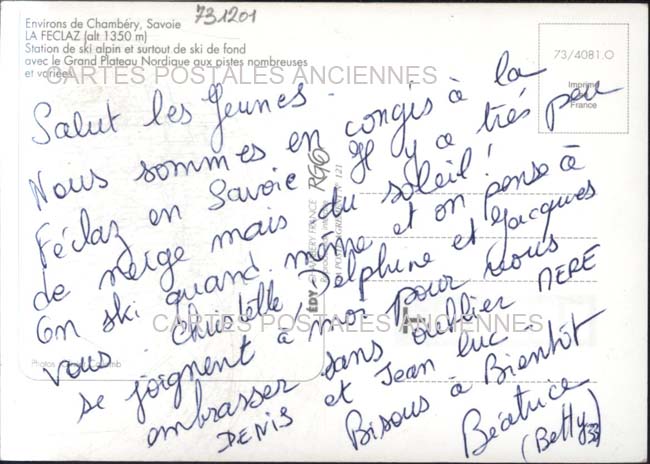 731201
Environs de Chambéry, Savoie
LA FECLAZ (alt 1350 m)
Station de ski alpin et surtout de ski de fond
avec le Grand Plateau Nordique aux pistes nombreuses
et variées
73/4081.O
Imprimé
France
CARTES POSTALES ANCIENNES
Salut les Jeunes.
Nous sommes en congés à la
Féclaz en Savoie Il y a très peu
de neige mais du soleil !
On ski quand même et on pense à
vous. Christelle, Delphine et Jacques
se joignent à moi pour vous
embrasser sans oublier MERE
DENIS et Jean Luc.
Bisous à Bientôt
Béatrice
(Betty)
CARTES POSTALES ANCIENNES
Photos